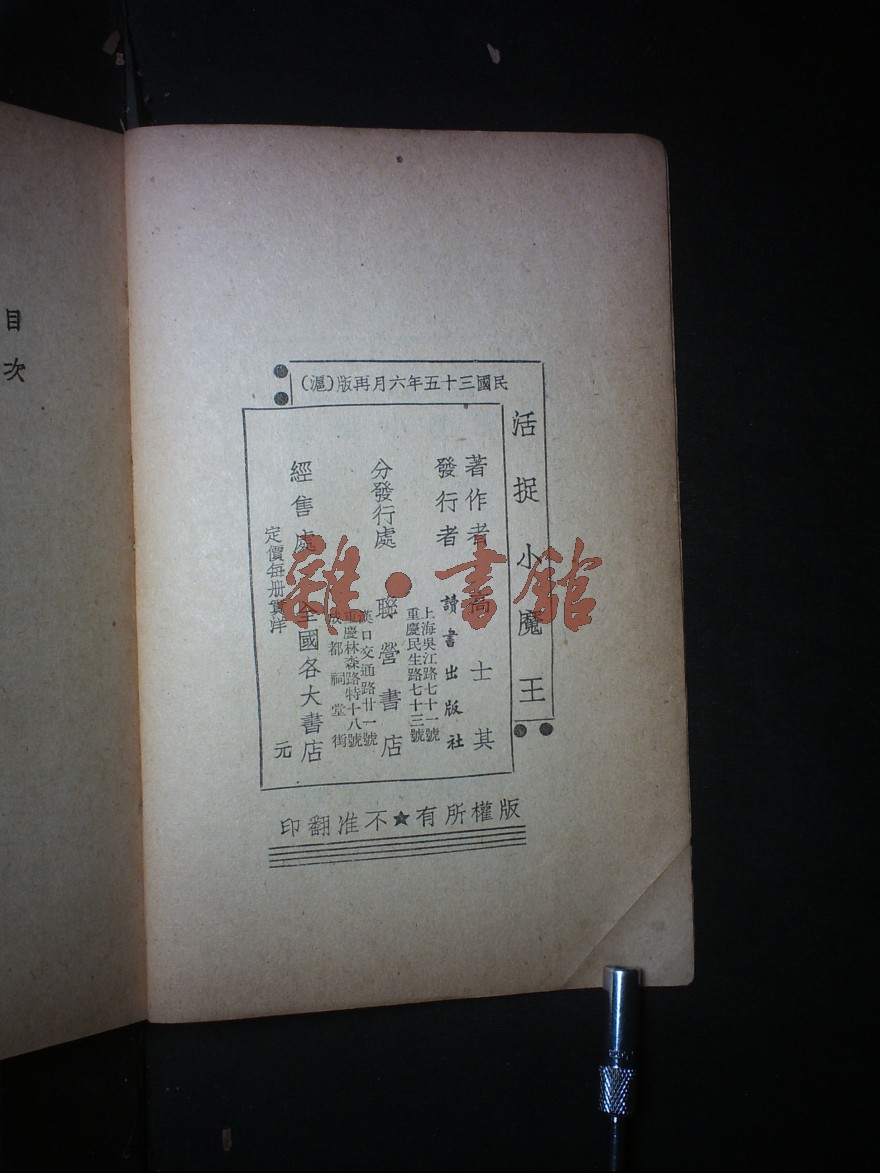 民國三十五年六月再版(滬)
活捉小魔王
著作者 高士其
發行者 讀書出版社
上海吳江路七十一號
重慶民生路七十三號
分發行處 聯營書店
漢口交通路廿一號
重慶林森路特十八號
成都祠堂街
經售處 全國各大書店
定價每册實洋 元
版權所有★不准翻印
目次
雜·書館